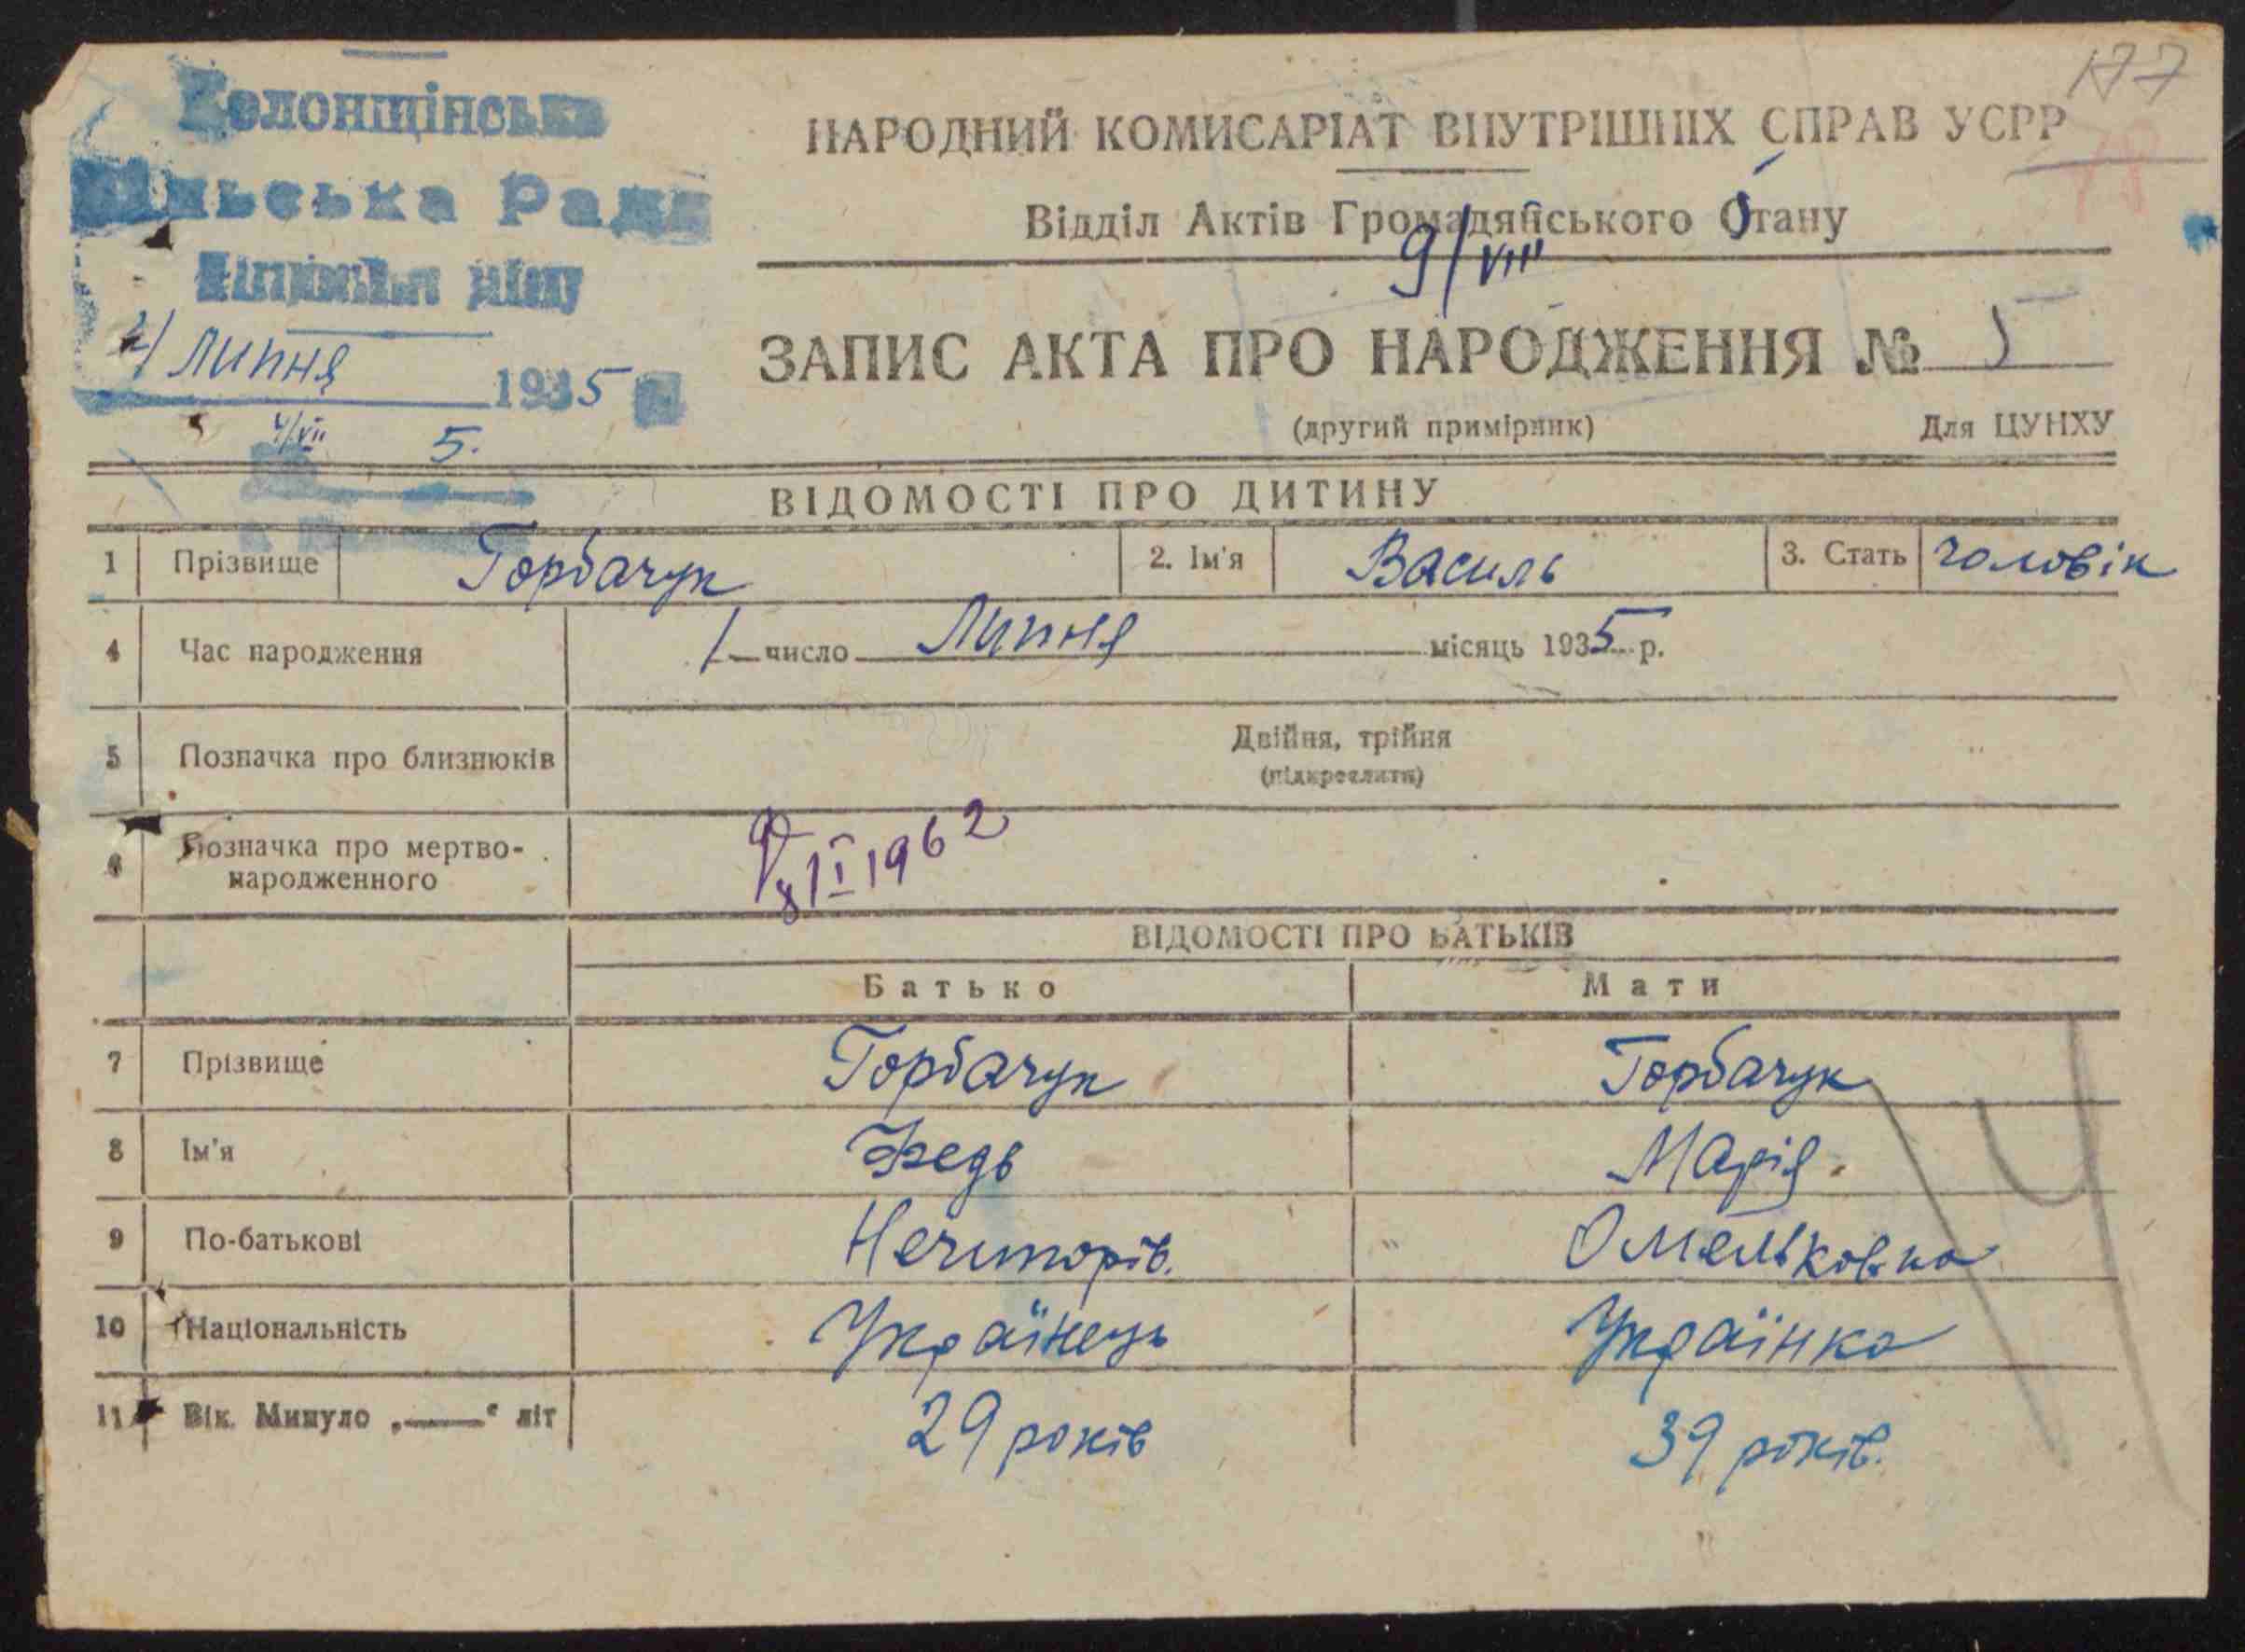 Колонщінська
Сільська Рада
4/ Липня 1935
4/VII 5.
177
НАРОДНИЙ КОМИСАРІАТ ВНУТРІШНІХ СПРАВ УСРР
Відділ Актів Громадянського Стану
9/VIII
ЗАПИС АКТА ПРО НАРОДЖЕННЯ № 5
(другий примірник) Для ЦУНХУ
ВІДОМОСТІ ПРО ДИТИНУ
1 Прізвище Горбачук 2. Ім'я Василь 3. Стать чоловік
4 Час народження 1 число Липня місяць 1935 р.
5 Позначка про близнюків Двійня, трійня
(підкреслити)
6 Позначка про мертво-
народженного
8/I 1962
ВІДОМОСТІ ПРО БАТЬКІВ
Батько Мати
7 Прізвище Горбачук Горбачук
8 Ім'я Федь Марія.
9 По-батькові Нечипорів. Омельковна
10 Національність Українець Українка
11 Вік. Минуло „——“ літ 29 років 39 років.